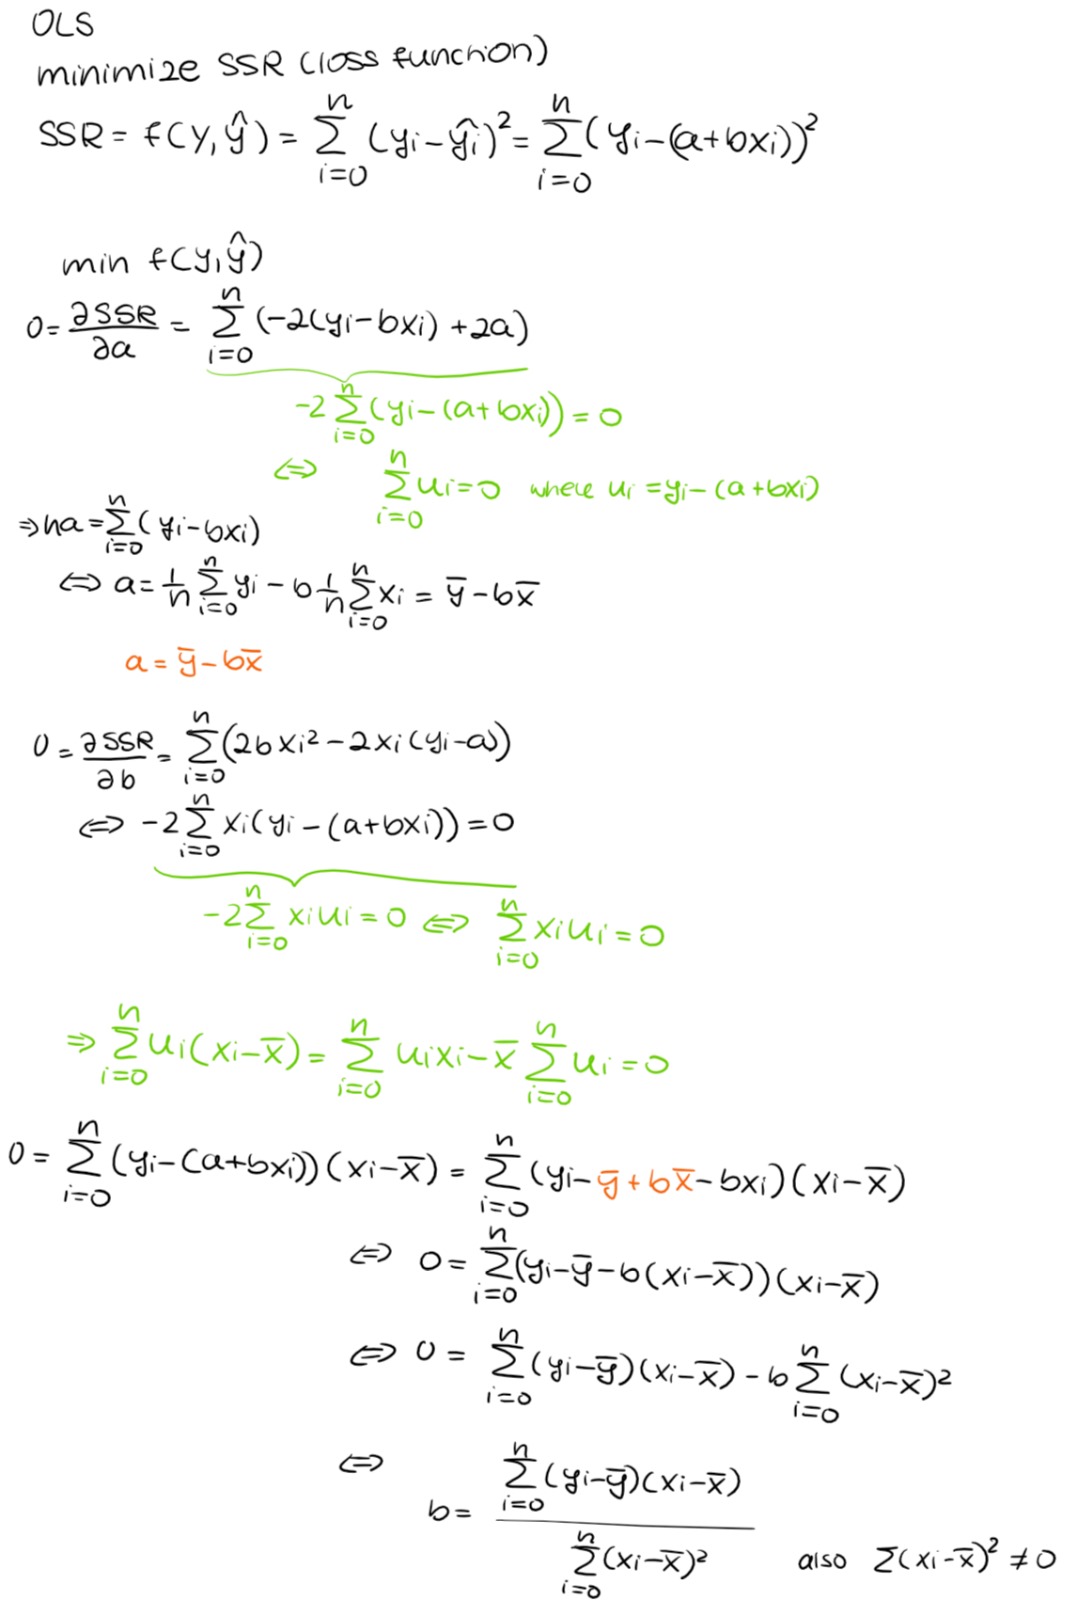 OLS
minimize SSR (loss function)
SSR = f(y,ŷ) = ∑_{i=0}^{n} (yi−ŷi)² = ∑_{i=0}^{n} (yi−(a+bxi))²
min f(y,ŷ)
0 = ∂SSR/∂a = ∑_{i=0}^{n} (−2(yi−bxi) + 2a)
−2 ∑_{i=0}^{n} (yi−(a+bxi)) = 0
⇔ ∑_{i=0}^{n} ui = 0 where ui = yi−(a+bxi)
⇒ na = ∑_{i=0}^{n} (yi−bxi)
⇔ a = 1/n ∑_{i=0}^{n} yi − b 1/n ∑_{i=0}^{n} xi = ȳ − bx̄
a = ȳ − bx̄
0 = ∂SSR/∂b = ∑_{i=0}^{n} (2bxi² − 2xi(yi−a))
⇔ −2 ∑_{i=0}^{n} xi(yi − (a+bxi)) = 0
−2 ∑_{i=0}^{n} xiui = 0 ⇔ ∑_{i=0}^{n} xiui = 0
⇒ ∑_{i=0}^{n} ui(xi−x̄) = ∑_{i=0}^{n} uixi − x̄ ∑_{i=0}^{n} ui = 0
0 = ∑_{i=0}^{n} (yi−(a+bxi))(xi−x̄) = ∑_{i=0}^{n} (yi−ȳ+bx̄−bxi)(xi−x̄)
⇔ 0 = ∑_{i=0}^{n} (yi−ȳ−b(xi−x̄))(xi−x̄)
⇔ 0 = ∑_{i=0}^{n} (yi−ȳ)(xi−x̄) − b ∑_{i=0}^{n} (xi−x̄)²
⇔ b = ∑_{i=0}^{n} (yi−ȳ)(xi−x̄) / ∑_{i=0}^{n} (xi−x̄)² also ∑(xi−x̄)² ≠ 0